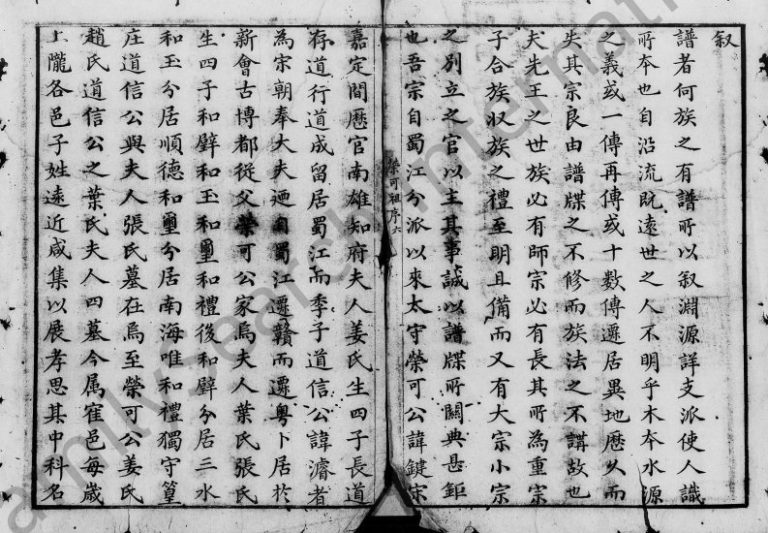 叙
譜者何族之有譜所以叙淵源詳支派使人識
所夲也自沿流既遠世之人不明乎木夲水源
之義或一傳再傳或十數傳遷居異地歷久而
失其宗良由譜牒之不修而族法之不講故也
夫先王之世族必有師宗必有長其所為重宗
子合族收族之禮至明且備而又有大宗小宗
之別立之官以主其事誠以譜牒所關典惎鉅
也吾宗自蜀江分派以來太守榮可公諱鍵宋
榮可祖序六
嘉定間歷官南雄知府夫人姜氏生四子長道
存道行道成留居蜀江而季子道信公諱濬者
為宋朝奉大夫迺自蜀江遷贛而遷粵卜居於
新會古博都從父榮可公家焉夫人葉氏張氏
生四子和璧和玉和璽和禮後和璧分居三水
和玉分居順德和璽分居南海唯和禮獨守篁
庄道信公與夫人張氏墓在焉至榮可公姜氏
趙氏道信公之葉氏夫人四墓今属隺邑每嵗
上隴各邑子姓遠近咸集以展孝思其中科名
FamilySearch International